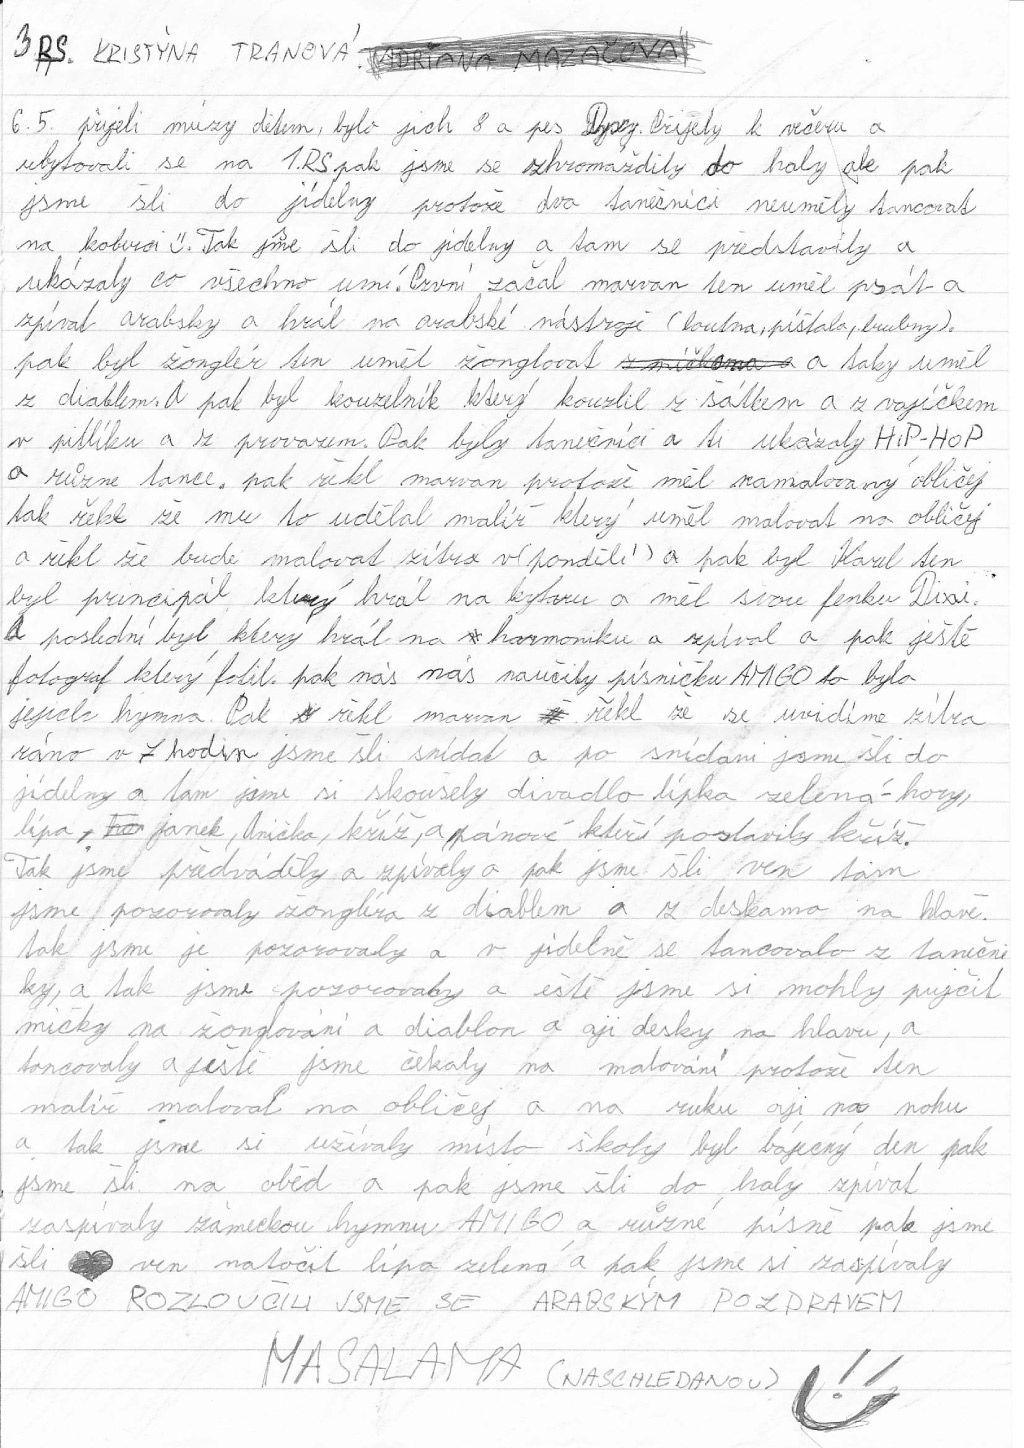 3.RS. KRISTÝNA TRANOVÁ. ADRIANA MAZAČOVA
6.5. přijeli múzy dětem, bylo jich 8 a pes Přijely k večeru a
ubytovali se na 1.RS pak jsme se zhromáždily do haly ale pak
jsme šli do jídelny protože dva tanečníci neuměly tancovat
na koberci ☺. Tak jsme šli do jídelny a tam se představily a
ukázaly co všechno umí. První začal marvan ten uměl psát a
zpívat arabsky a hrál na arabské nástroje (loutna, píštala, bubny).
pak byl žonglér ten uměl žonglovat a taky uměl
z diablem. A pak byl kouzelník který kouzlil z šátkem a z vajíčkem
v pitlíku a z provazem. Pak byly tanečníci a ti ukázaly HIP-HOP
a různe tance. pak řekl marvan protože měl namalovaný obličej
tak řekl že mu to udělal malíř který uměl malovat na obličej
a řekl že bude malovat zítra v(pondělí) a pak byl Karel ten
byl principál který hrál na kytaru a měl svou fenku Dixi.
A poslední byl který hrál na harmoniku a zpíval a pak ještě
fotograf který fotil. pak nás nás naučily písničku AMIGO to byla
jejich hymna. Pak řekl marvan řekl že se uvidíme zítra
ráno v 7 hodin jsme šli snídat a po snídani jsme šli do
jídelny a tam jsme si skoušely divadlo lípka zelená-hory,
lípa, janek, Anička, kříž, a pánové kteří postavily kříž.
Tak jsme předváděly a zpívaly a pak jsme šli ven tam
jsme pozorovaly žongléra z diablem a z deskama na hlavě.
tak jsme je pozorovaly a v jídelně se tancovalo z tanečni
ky, a tak jsme pozorovaly a eště jsme si mohly pujčit
míčky na žonglování a diablon a aji desky na hlavu, a
tancovaly a ještě jsme čekaly na malování protože ten
malíř maloval na obličej a na ruku aji na nohu
a tak jsme si užívaly místo školy byl báječný den pak
jsme šli na oběd a pak jsme šli do haly zpívat
zaspívaly zámeckou hymnu AMIGO a různé písně pak jsme
šli ven natočit lípa zelená a pak jsme si zaspívaly
AMIGO ROZLOUČILI JSME SE ARABSKÝM POZDRAVEM
MASALAMA (NASCHLEDANOU)